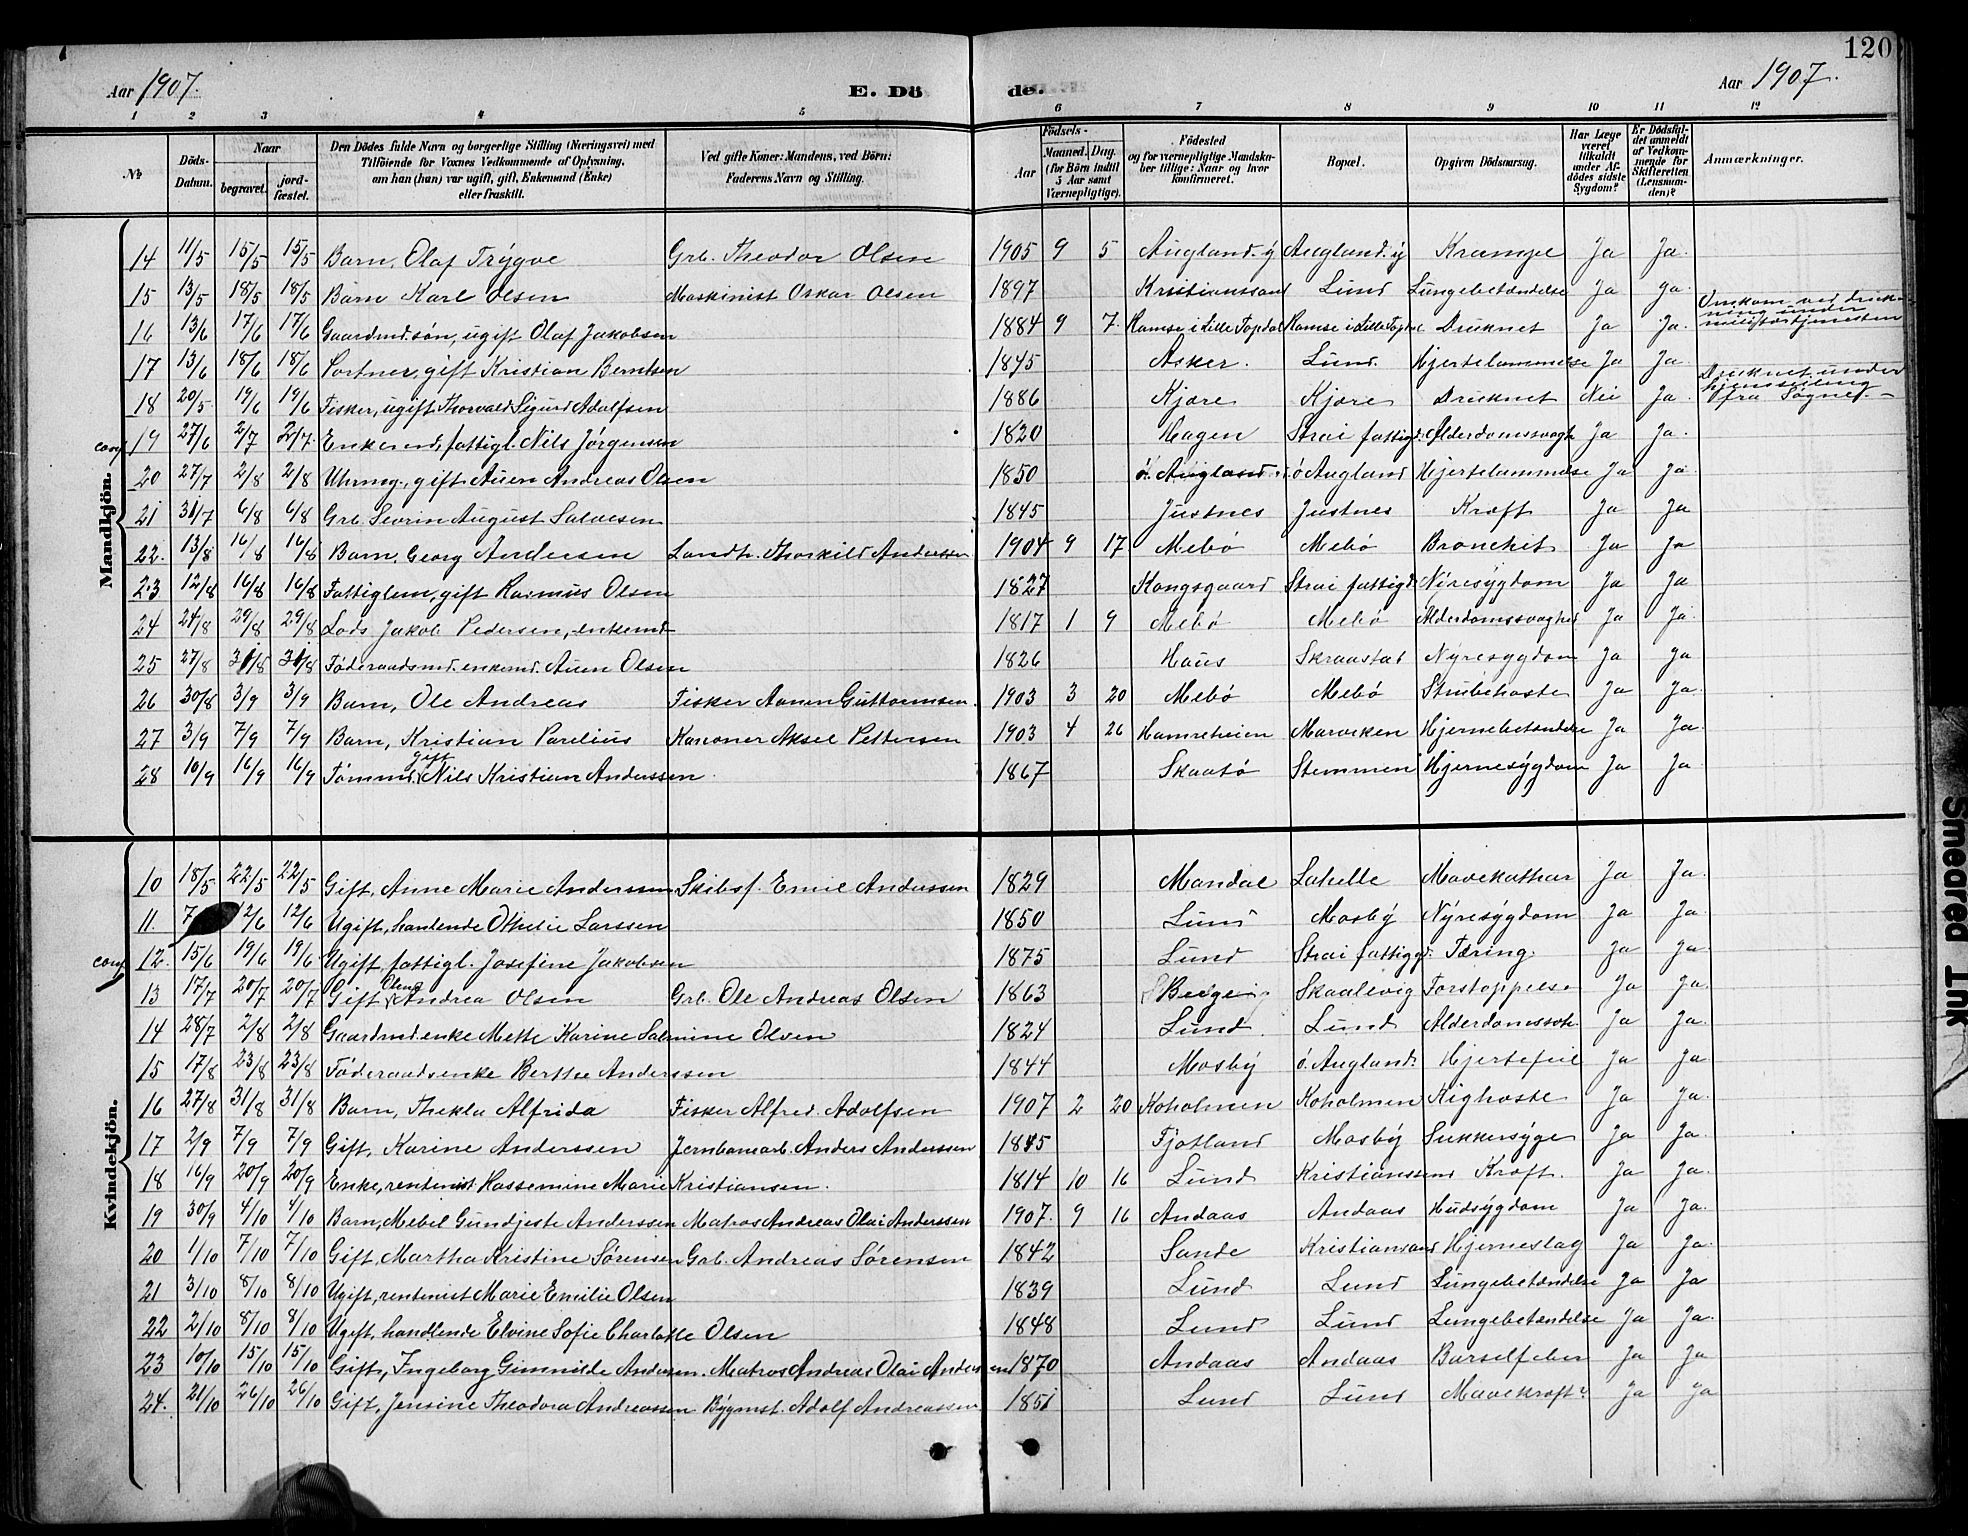 120
Aar 1907. E. Dö de. Aar 1907.
1 2 3 4 5 6 7 8 9 10 11 12
No. Döds-Datum. Naar begravet. jordfæstet. Den Dödes fulde Navn og borgerlige Stilling (Næringsvei) med Tilföiende for Voxnes Vedkommende af Oplysning, om han (hun) var ugift, gift, Enkemand (Enke) eller fraskilt. Ved gifte Koner: Mandens, ved Börn: Faderens Navn og Stilling. Födsels- Aar Maaned. Dag. (for Börn indtil 5 Aar samt Værnepligtige). Födested og for værnepligtige Mandskaber tillige: Naar og hvor konfirmeret. Bopæl. Opgiven Dödsaarsag. Har Læge været tilkaldt under Afdödes sidste Sygdom? Er Dödsfaldet anmeldt af Vedkommende for Skifteretten (Lensmanden)? Anmærkninger.
Mandkjön.
14 11/5 15/5 15/5 Barn, Olaf Trygve Grb. Theodor Olsen 1905 9 5 Augland. y Augland. y Krampe Ja Ja.
15 13/5 18/5 18/5 Barn Karl Olsen Maskinist Oskar Olsen 1897 Kristianssand Lund Lungebetændelse Ja Ja.
16 13/6 17/6 17/6 Gaardmd.søn, ugift Olaf Jakobsen 1884 9 7. Ramse i Lille Topdal Ramse i Lille Topdal Druknet Ja Ja. Omkom ved drukning under militærtjenesten
17 13/6 18/6 18/6 Portner, gift Kristian Berntsen 1845 Asker. Lund. Hjertelammelse Ja Ja
18 20/5 19/6 19/6 Fisker, ugift Thorvald Sigurd Adolfsen 1886 Kjære Kjære Druknet Nei Ja. Druknet under hjemseiling fra Søgne.
conf 19 27/6 2/7 2/7. Enkemd, fattigl. Nils Jørgensen 1820 Hagen Strai fattigd. Alderdomssvagh Ja Ja.
20 27/7 2/8 2/8 Uhrmg., gift Auen Andreas Olsen 1850 ø. Augland. ø Augland Hjertelammelse Ja Ja
21 31/7 6/8 6/8 Grb. Sevrin August Salvesen 1845 Justnes Justnes Kræft Ja Ja
22. 13/8 16/8 16/8 Barn, Georg Andersen Landh. Thorkild Andersen 1904 9 17 Mebø Mebø Bronchit Ja Ja
23 12/8 16/8 16/8 Fattiglem, gift Rasmus Olsen 1827 Kongsgaard Strai fattigd Nyresygdom Ja Ja
24 24/8 29/8 29/8 Lods Jakob Pedersen, enkemd 1817 1 9 Mebø Mebø Alderdomssvaghed Ja Ja.
25 27/8 31/8 31/8 Føderaadsmd. enkemd. Auen Olsen 1826 Haus Skraastad Nyresygdom Ja Ja
26 30/8 3/9 3/9 Barn, Ole Andreas Fisker Aanen Guttormsen. 1903 3 20 Mebø Mebø Strubehoste Ja Ja.
27 3/9 7/9 7/9 Barn, Kristian Parelius Kanoner Aksel Pettersen 1903 4 26 Hamreheien Marviken Hjernebetændelse Ja Ja.
28 10/9 16/9 16/9 Tømmd, gift Nils Kristian Anderssen. 1867 Skaatø Stemmen Hjernesygdom Ja Ja.
Kvindekjön.
10 18/5 22/5 22/5 Gift, Anne Marie Anderssen Skibsf. Emil Anderssen 1829 Mandal Lahelle Mavekathar Ja Ja.
11. 7 12/6 12/6 Ugift, handlende Othelie Larssen 1850 Lund Mosby Nyresygdom Ja Ja.
conf 12. 15/6 19/6 19/6 Ugift, fattigl. Josefine Jakobsen 1875 Lund Strai fattigd. Tæring. Ja Ja.
13 17/7 20/7 20/7 Gift Olene Andrea Olsen Grb. Ole Andreas Olsen 1863 Skaalevig Forstoppelse Ja Ja.
14 28/7 2/8 2/8 Gaardmd.enke Mette Karine Salmine Olsen 1824 Lund. Lund Alderdomssvh. Ja Ja.
15 17/8 23/8 23/8 Føderaadsenke Berthe Anderssen 1844 Mosby ø. Augland. Hjertefeil Ja Ja.
16 27/8 31/8 31/8 Barn, Thekla Alfrida Fisker Alfred. Adolfsen 1907 2 20 Koholmen Koholmen Kighoste Ja Ja.
17 2/9 7/9 7/9 Gift, Karine Anderssen Jernbanearb. Anders Anderssen 1845 Fjotland Mosby Sukkersyge Ja Ja.
18 16/9 20/9 20/9 Enke, rentenist Hassemine Marie Kristiansen. 1814 10 16 Lund Kristianssand Kræft. Ja Ja.
19 30/9 4/10 4/10 Barn, Mebil Gundjeste Anderssen Matros Andreas Olai Anderssen 1907. 9 16 Andaas Andaas Hudsygdom Ja Ja.
20 1/10 7/10 7/10 Gift, Martha Kristine Sørensen Grb. Andreas Sørensen 1842 Sande Kristiansand Hjerneslag Ja Ja.
21 3/10 8/10 8/10 Ugift, rentenist Marie Emilie Olsen 1839 Lund Lund Lungebetændelse Ja Ja
22 2/10 8/10 8/10 Ugift, handlende Elvine Sofie Charlotte Olsen 1848 Lund Lund Lungebetændelse Ja Ja.
23 10/10 15/10 15/10 Gift, Ingeborg Gunnilde Andersen. Matros Andreas Olai Andersen 1870 Andaas Andaas Barselfeber Ja Ja
24. 21/10 26/10 26/10 Gift, Jensine Theodora Andreassen Bygmst. Adolf Andreassen 1851 Lund Lund Mavekræft Ja Ja
Smeared Ink